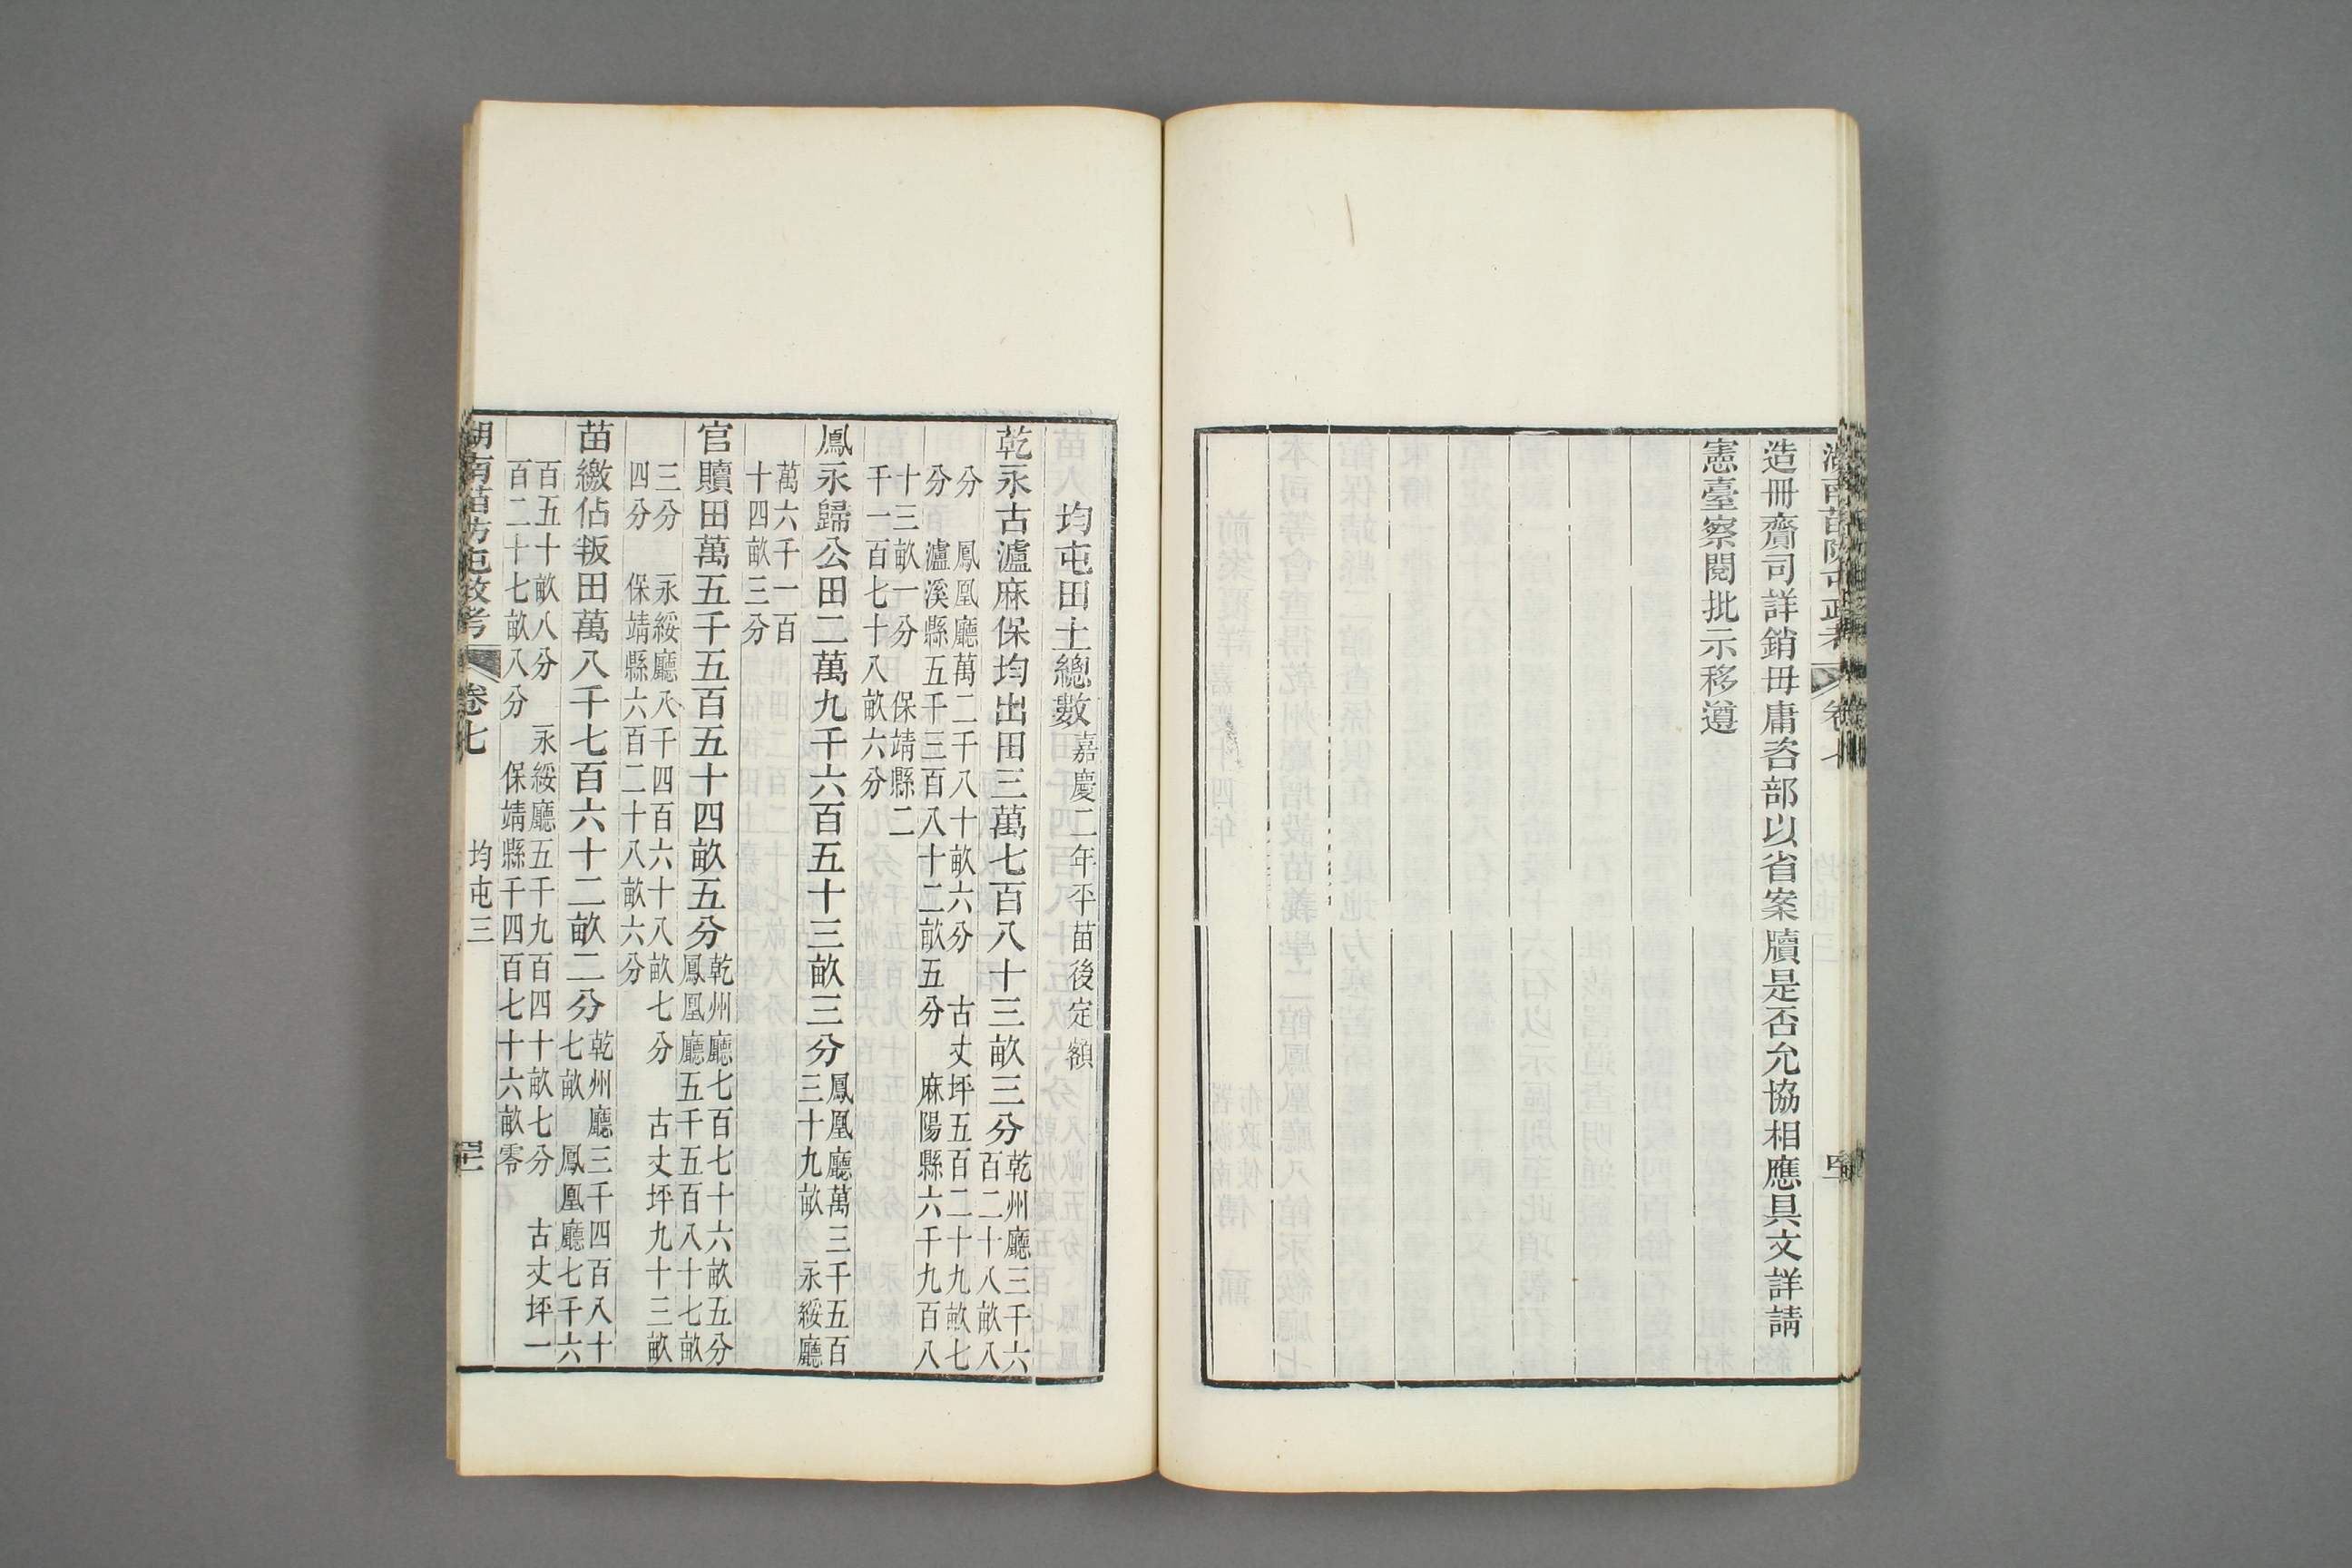 造冊齎司詳銷毋庸咨部以省案牘是否允協相應具文詳請
憲臺察閱批示移遵
均屯田土總數嘉慶二年平苗後定額
乾永古瀘麻保均出田三萬七百八十三畝三分乾州廳三千六
百二十八畝八
分　鳳凰廳萬二千八十畝六分　古丈坪五百二十九畝七
分　瀘溪縣五千三百八十二畝五分　麻陽縣六千九百八
十三畝一分　保靖縣二
千一百七十八畝六分
鳳永歸公田二萬九千六百五十三畝三分鳳凰廳萬三千五百
三十九畝　永綏廳
萬六千一百
十四畝三分
官贖田萬五千五百五十四畝五分乾州廳七百七十六畝五分
鳳凰廳五千五百八十七畝
三分　永綏廳八千四百六十八畝七分　古丈坪九十三畝
四分　保靖縣六百二十八畝六分
苗繳佔叛田萬八千七百六十二畝二分乾州廳三千四百八十
七畝　鳳凰廳七千六
百五十畝八分　永綏廳五千九百四十畝七分　古丈坪一
百二十七畝八分　保靖縣千四百七十六畝零
湖南苗防屯政考　卷七　均屯三